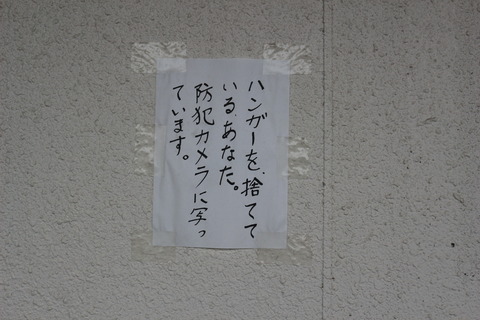 ハンガーを、捨てて
いる、あなた。
防犯カメラに写っ
ています。